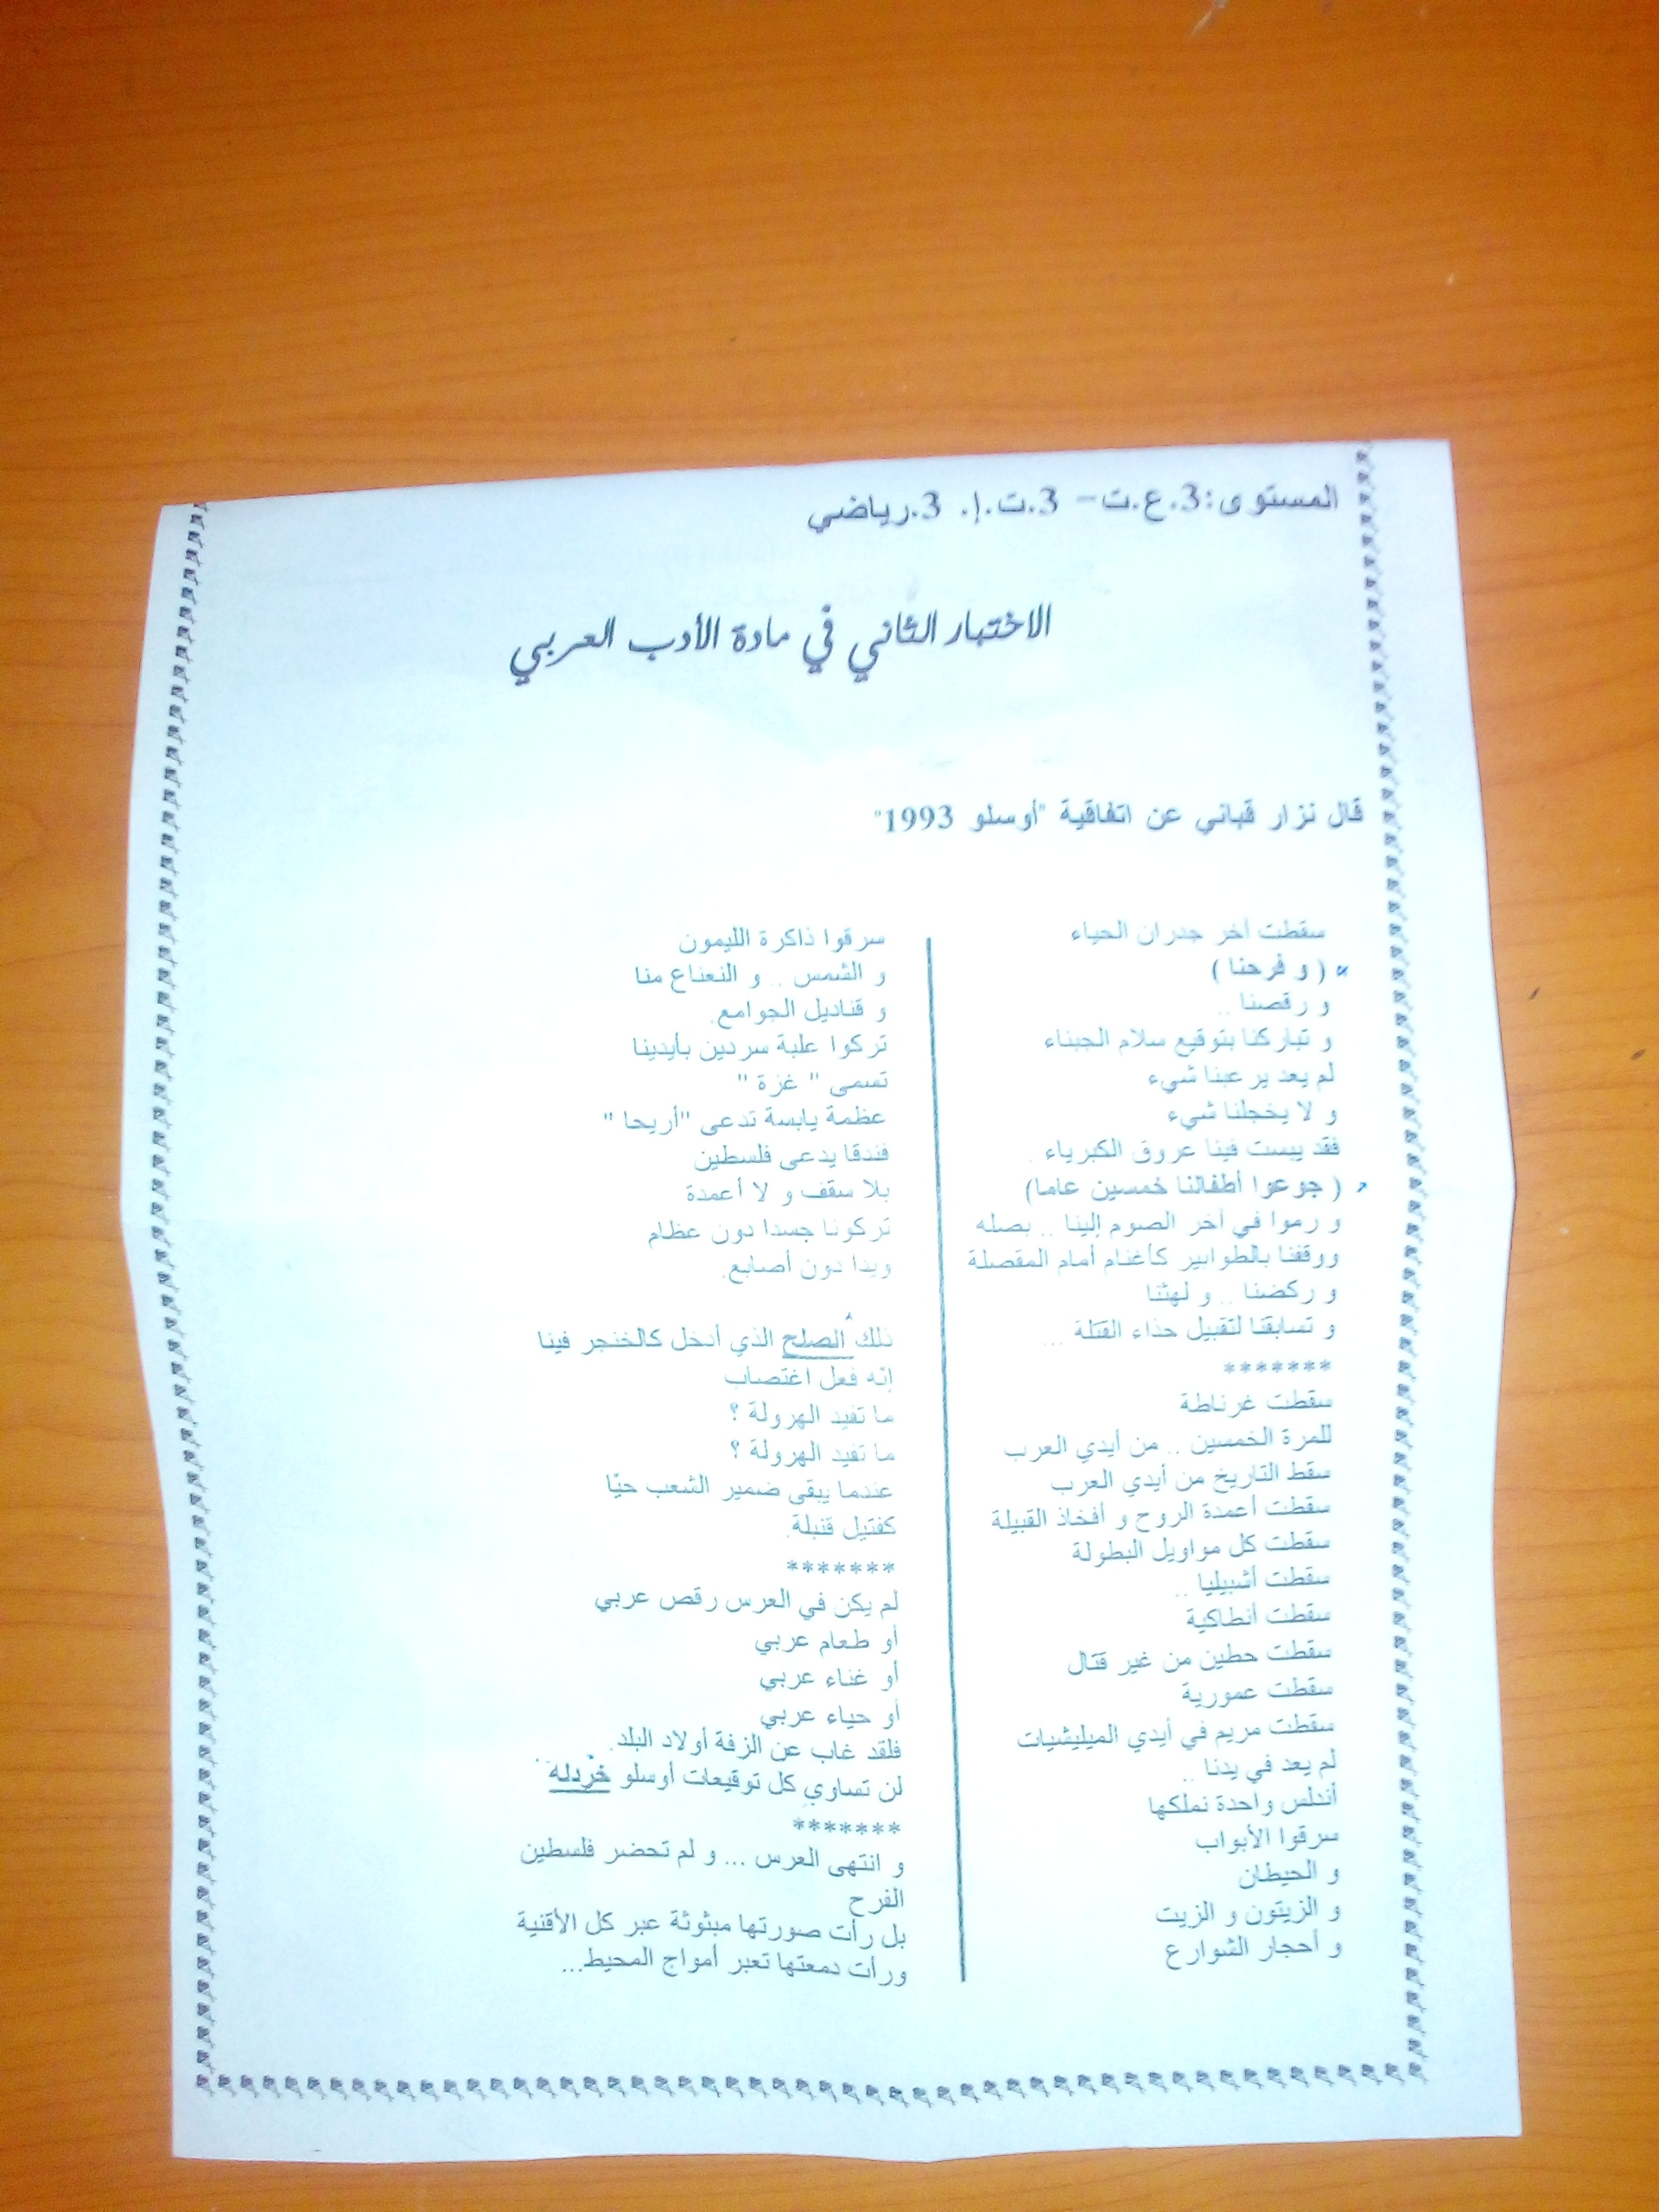 المستوى:3.ع.ت- 3.ت.إ. 3.رياضي
الاختبار الثاني في مادة الأدب العربي
قال نزار قباني عن اتفاقية "أوسلو 1993"
سقطت آخر جدران الحياء
( و فرحنا )
و رقصنا ..
و تباركنا بتوقيع سلام الجبناء
لم يعد يرعبنا شيء
و لا يخجلنا شيء
فقد يبست فينا عروق الكبرياء .
( جوعوا أطفالنا خمسين عاما)
و رموا في آخر الصوم إلينا .. بصله
ووقفنا بالطوابير كأغنام أمام المقصلة
و ركضنا .. و لهثنا
و تسابقنا لتقبيل حذاء القتلة ...
*******
سقطت غرناطة
للمرة الخمسين .. من أيدي العرب
سقط التاريخ من أيدي العرب
سقطت أعمدة الروح و أفخاذ القبيلة
سقطت كل مواويل البطولة
سقطت أشبيليا ..
سقطت أنطاكية
سقطت حطين من غير قتال
سقطت عمورية
سقطت مريم في أيدي الميليشيات
لم يعد في يدنا ..
أندلس واحدة نملكها
سرقوا الأبواب
و الحيطان
و الزيتون و الزيت
و أحجار الشوارع
سرقوا ذاكرة الليمون
و الشمس .. و النعناع منا
و قناديل الجوامع.
تركوا علبة سردين بأيدينا
تسمى " غزة "
عظمة يابسة تدعى "أريحا "
فندقا يدعى فلسطين
بلا سقف و لا أعمدة
تركونا جسدا دون عظام
ويدا دون أصابع.
ذلك الصلح الذي أدخل كالخنجر فينا
إنه فعل اغتصاب
ما تفيد الهرولة ؟
ما تفيد الهرولة ؟
عندما يبقى ضمير الشعب حيًا
كفتيل قنبلة.
*******
لم يكن في العرس رقص عربي
أو طعام عربي
أو غناء عربي
أو حياء عربي
فلقد غاب عن الزفة أولاد البلد.
لن تساوي كل توقيعات أوسلو خردله
*******
و انتهى العرس ... و لم تحضر فلسطين
الفرح
بل رأت صورتها مبثوثة عبر كل الأقنية
ورأت دمعتها تعبر أمواج المحيط...